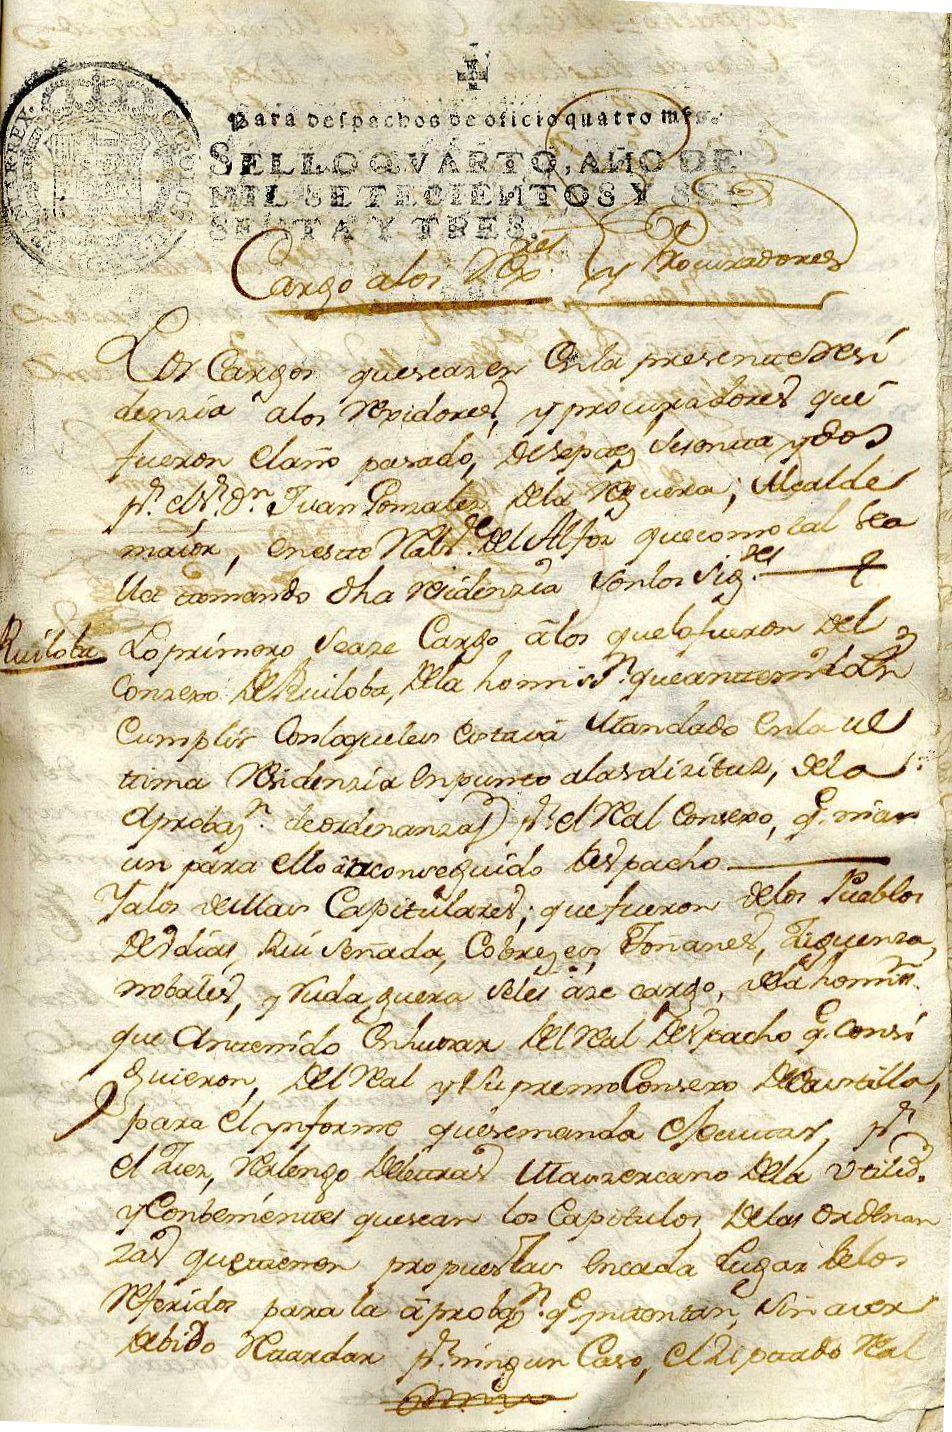 Para despachos de oficio quatro mrs.
SELLO QVARTO, AÑO DE
MIL SETECIENTOS Y SE-
SENTA Y TRES.
Cargo alos Rexres y Procuradores
Los Cargos queseazen Enla presente Resi
denzia alos Rexidores, y procuradores que
fueron el año pasado, de sesenta y dos
pr. el Sr. Dn. Juan Gonzalez dela Reguera, Alcalde
maior, eneste Rl. del Alfoz que como tal sea
lla tomando dha residenzia son los sigtes
Ruiloba
Lo primero seaze Cargo a los que lo fueron del
Conzexo de Ruiloba, dela homisn. que an tenido en
Cumplir Conloqueles estava Mandado enla ul
tima Residenzia en punto alas dizitud, dela
aprobazn. de ordinanzas pr. el Real Consexo, q. niar
un para ello a conseguido despacho
Yalos demas Capitulares, que fueron delos Pueblos
de Udias, Ruiseñada, Cobrezes, Toñanes, Ziguenza,
nobales, y Rudaguera seles aze cargo, dela homisn.
que an tenido en husar del Real Despacho q. consi
guieron, del Real y Supremo Consexo de Castilla,
para el ynforme quesemanda executar, pr.
el Juez, Realengo deletras Mas zercano dela utilid.
y Conbenientes quesean los Capitulos delas ordenan
zas que tienen propuestas en cada Lugar delos
Referidos para la aprobazn. qe. yntentan, sin aver
debido Retardar pr. ningun Caso, el zitado Real